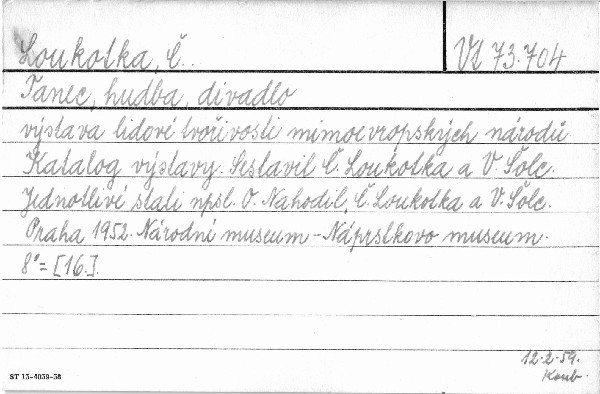 Loukotka, Č.
Vl 73.704
Tanec, hudba, divadlo
výstava lidové tvořivosti mimoevropských národů.
Katalog výstavy. Sestavil Č. Loukotka a V. Šolc.
Jednotlivé stati npsl. O. Nahodil, Č. Loukotka a V. Šolc.
Praha 1952. Národní museum - Náprstkovo museum.
8°= [16.].
12.2.59.
Koub.
ST 15-4059-58